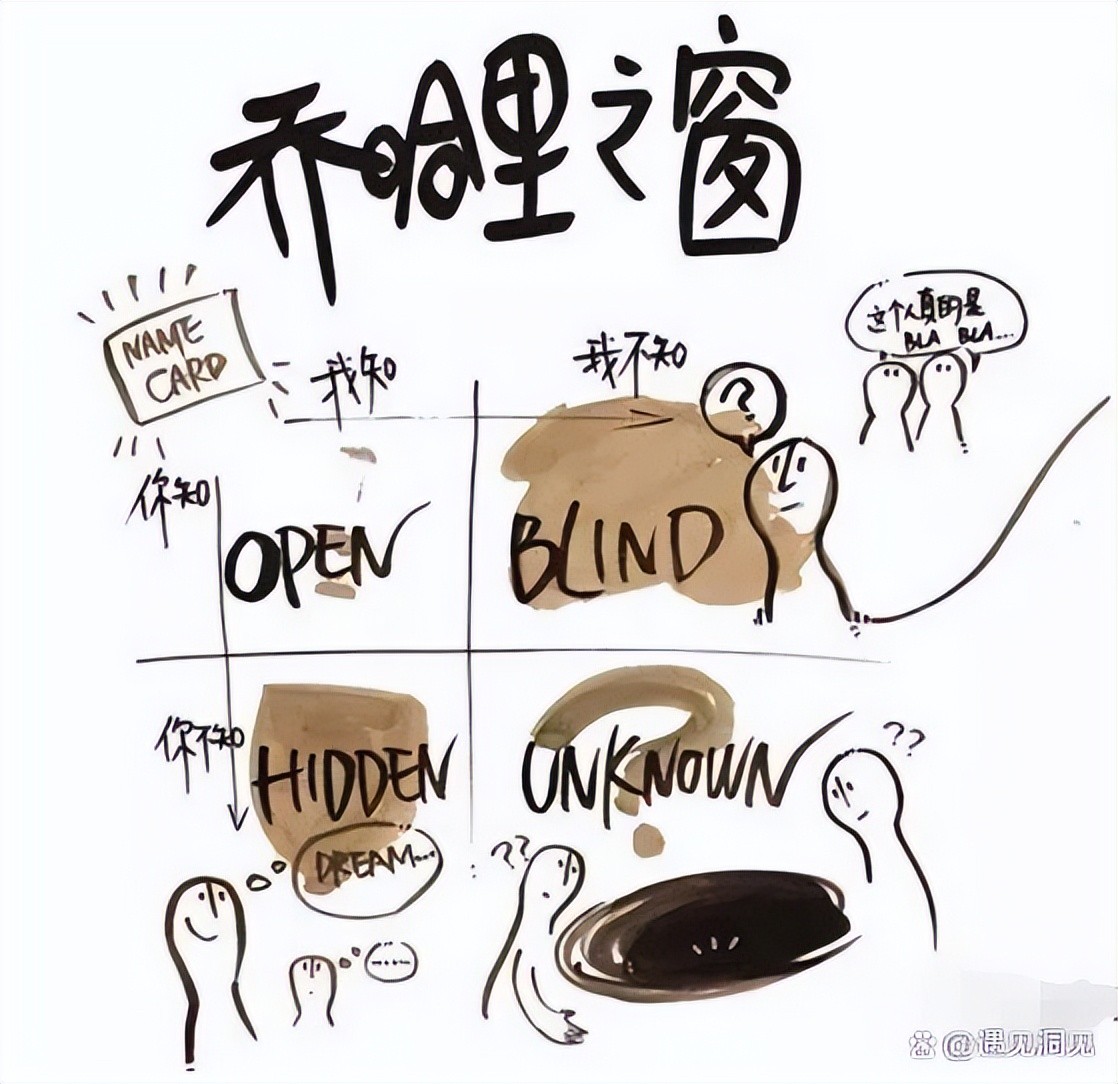 乔哈里之窗
NAME
CARD
我知
我不知
?
这个人真的是
BLA BLA...
你知
OPEN
BLIND
你不知
HIDDEN
UNKNOWN
??
DREAM...
??
....
@遇见洞见